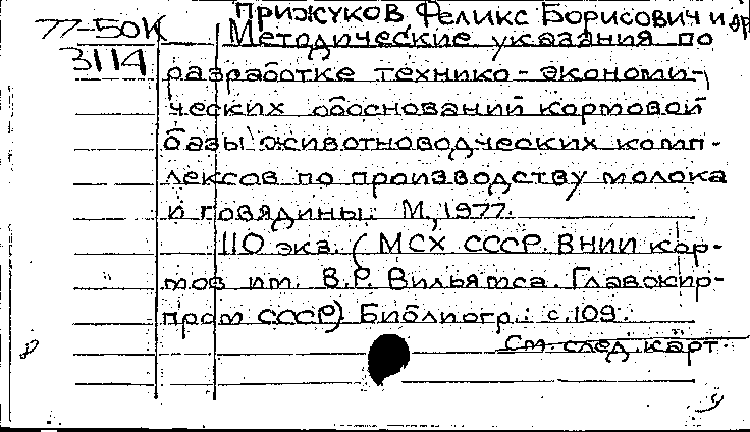 Прижуков, Феликс Борисович и др
77-50К
3114
Методические указания по
разработке технико-экономи-
ческих обоснований кормовой
базы животноводческих комп-
лексов по производству молока
и говядины. М., 1977.
110 экз. (МСХ СССР. ВНИИ кор-
мов им. В.Р. Вильямса. Главживр-
пром СССР) Библиогр.: с. 109.
См. след. карт.